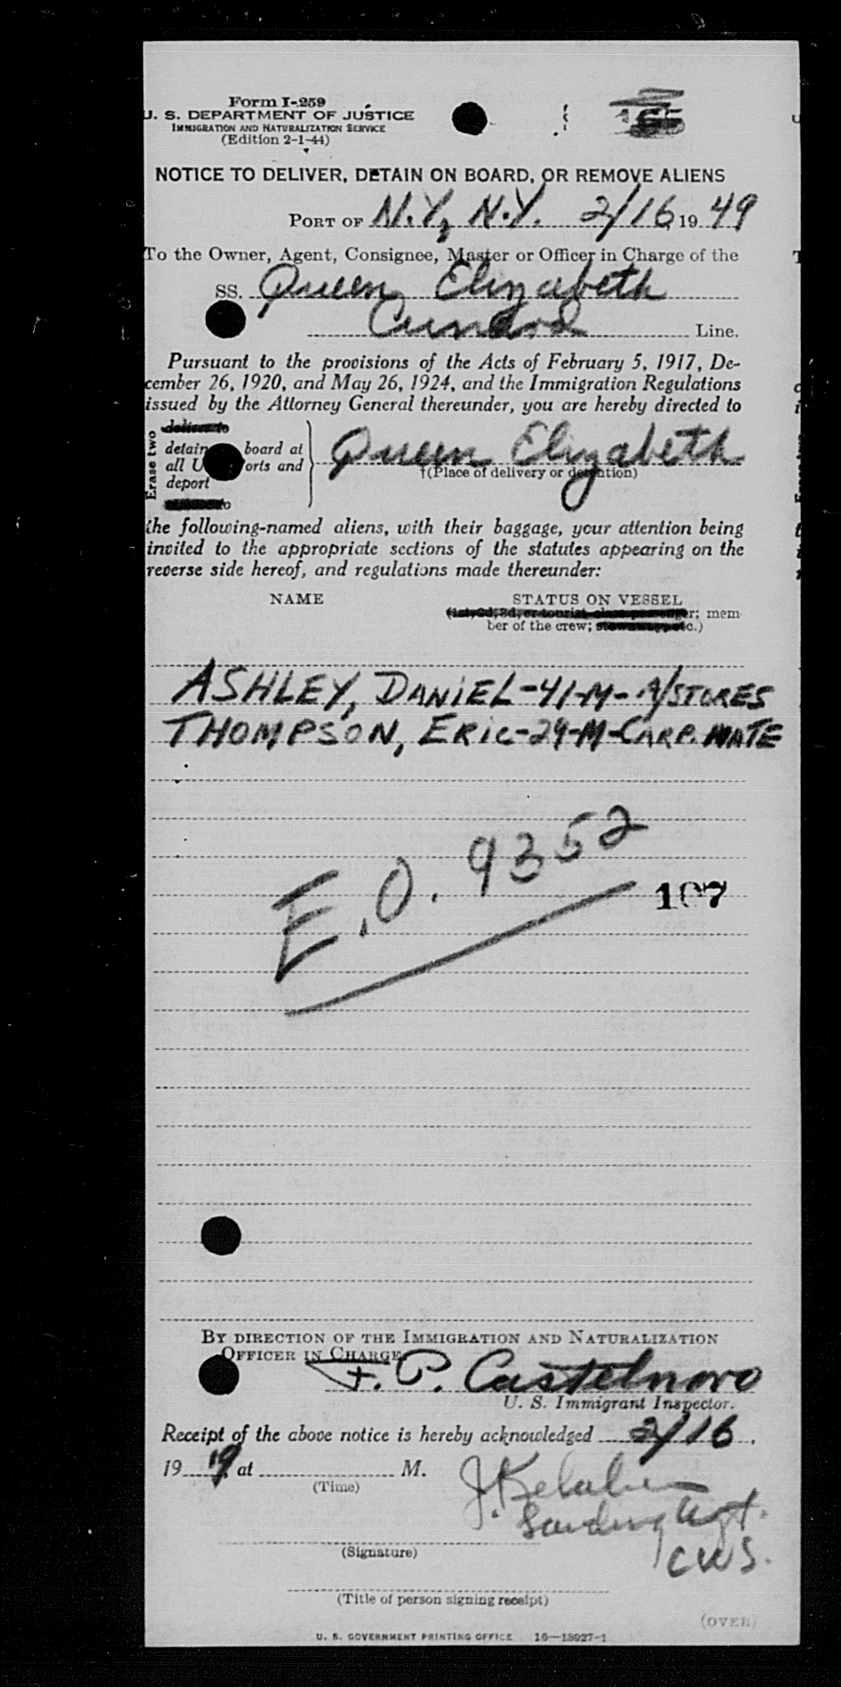 Form I-259
U. S. DEPARTMENT OF JUSTICE
IMMIGRATION AND NATURALIZATION SERVICE
(Edition 2-1-44)
NOTICE TO DELIVER, DETAIN ON BOARD, OR REMOVE ALIENS
PORT OF N.Y., N.Y. 2/16, 19 49
To the Owner, Agent, Consignee, Master or Officer in Charge of the
SS. Queen Elizabeth
Cunard Line.
Pursuant to the provisions of the Acts of February 5, 1917, De-
cember 26, 1920, and May 26, 1924, and the Immigration Regulations
issued by the Attorney General thereunder, you are hereby directed to
Erase two
deliver to
detain board at
all U orts and
deport
Queen Elizabeth
†(Place of delivery or detention)
the following-named aliens, with their baggage, your attention being
invited to the appropriate sections of the statutes appearing on the
reverse side hereof, and regulations made thereunder:
NAME STATUS ON VESSEL
(1st, 2d, 3d, or tourist class passenger; mem-
ber of the crew; stowaway, etc.)
ASHLEY, DANIEL-41-M- A/STORES
THOMPSON, ERIC-29-M-CARP. MATE
E.O. 9352
107
BY DIRECTION OF THE IMMIGRATION AND NATURALIZATION
OFFICER IN CHARGE
F. P. Castelnovo
U. S. Immigrant Inspector.
Receipt of the above notice is hereby acknowledged 2/16,
19 at M.
(Time)
J.
(Signature)
CWS.
(Title of person signing receipt)
(OVER)
U. S. GOVERNMENT PRINTING OFFICE 16—13927-1